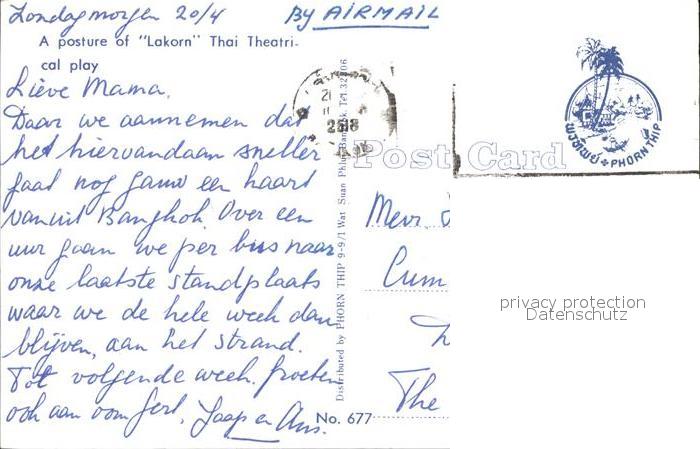 Zondagmorgen 20/4
By AIRMAIL
A posture of "Lakorn" Thai Theatri-
cal play
Lieve Mama,
Daar we aannemen dat
het hiervandaan sneller
gaat nog gauw een kaart
vanuit Bangkok. Over een
uur gaan we per bus naar
onze laatste standplaats
waar we de hele week dan
blijven, aan het strand.
Tot volgende week. groeten
ook aan oom Gert, Jaap en Ans.
Distributed by PHORN THIP 9-9/1 Wat Suan Phlu, Bangkok, Tel.
2518
Post Card
พรทิพย์ + PHORN THIP
Mevr.
Cum
The
No. 677
privacy protection
Datenschutz